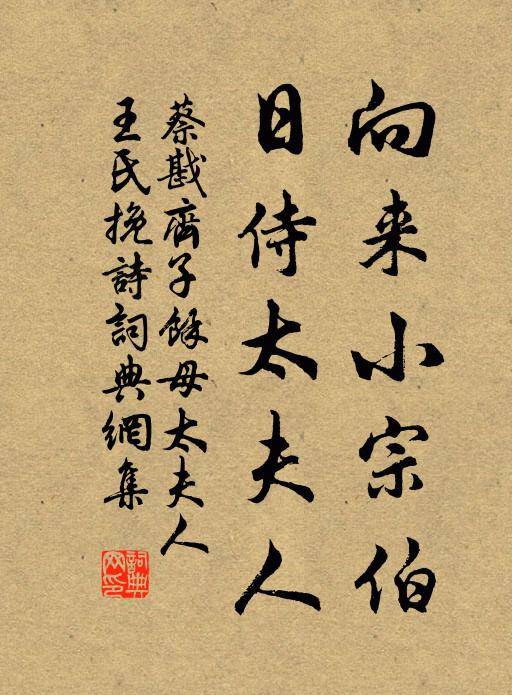 向来小宗伯
日侍太夫人
蔡戡齊子餘母太夫人
王氏挽詩詞典網集
詞典网印